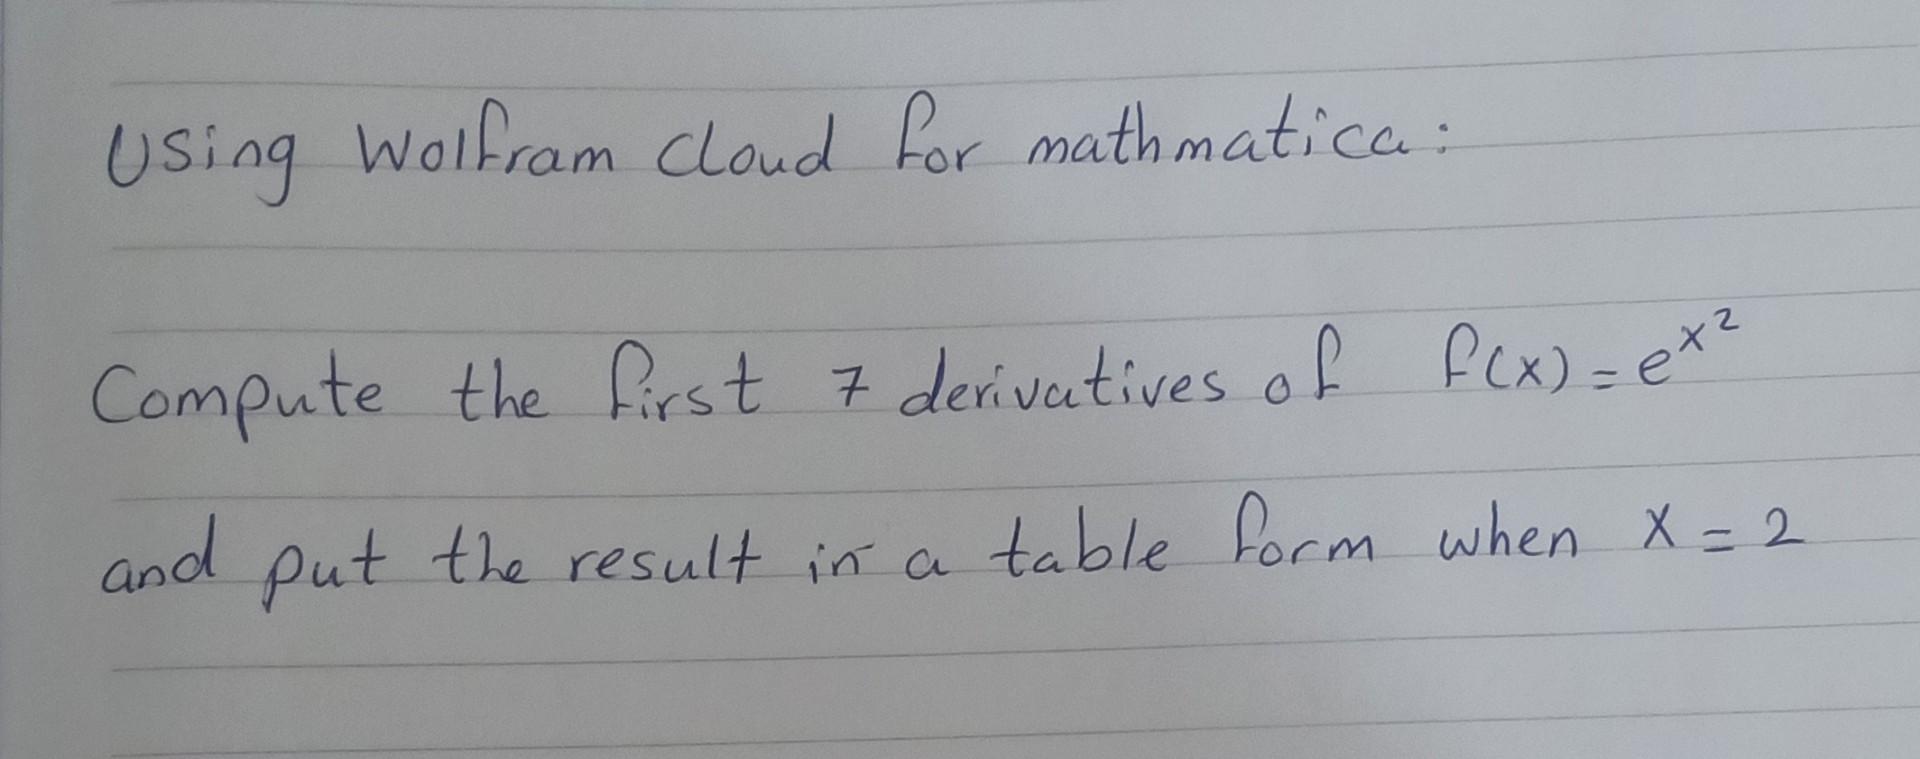 Using Wolfram Cloud for mathmatica:
Compute the first 7 derivatives of f(x) = e^x^2
and put the result in a table form when x = 2